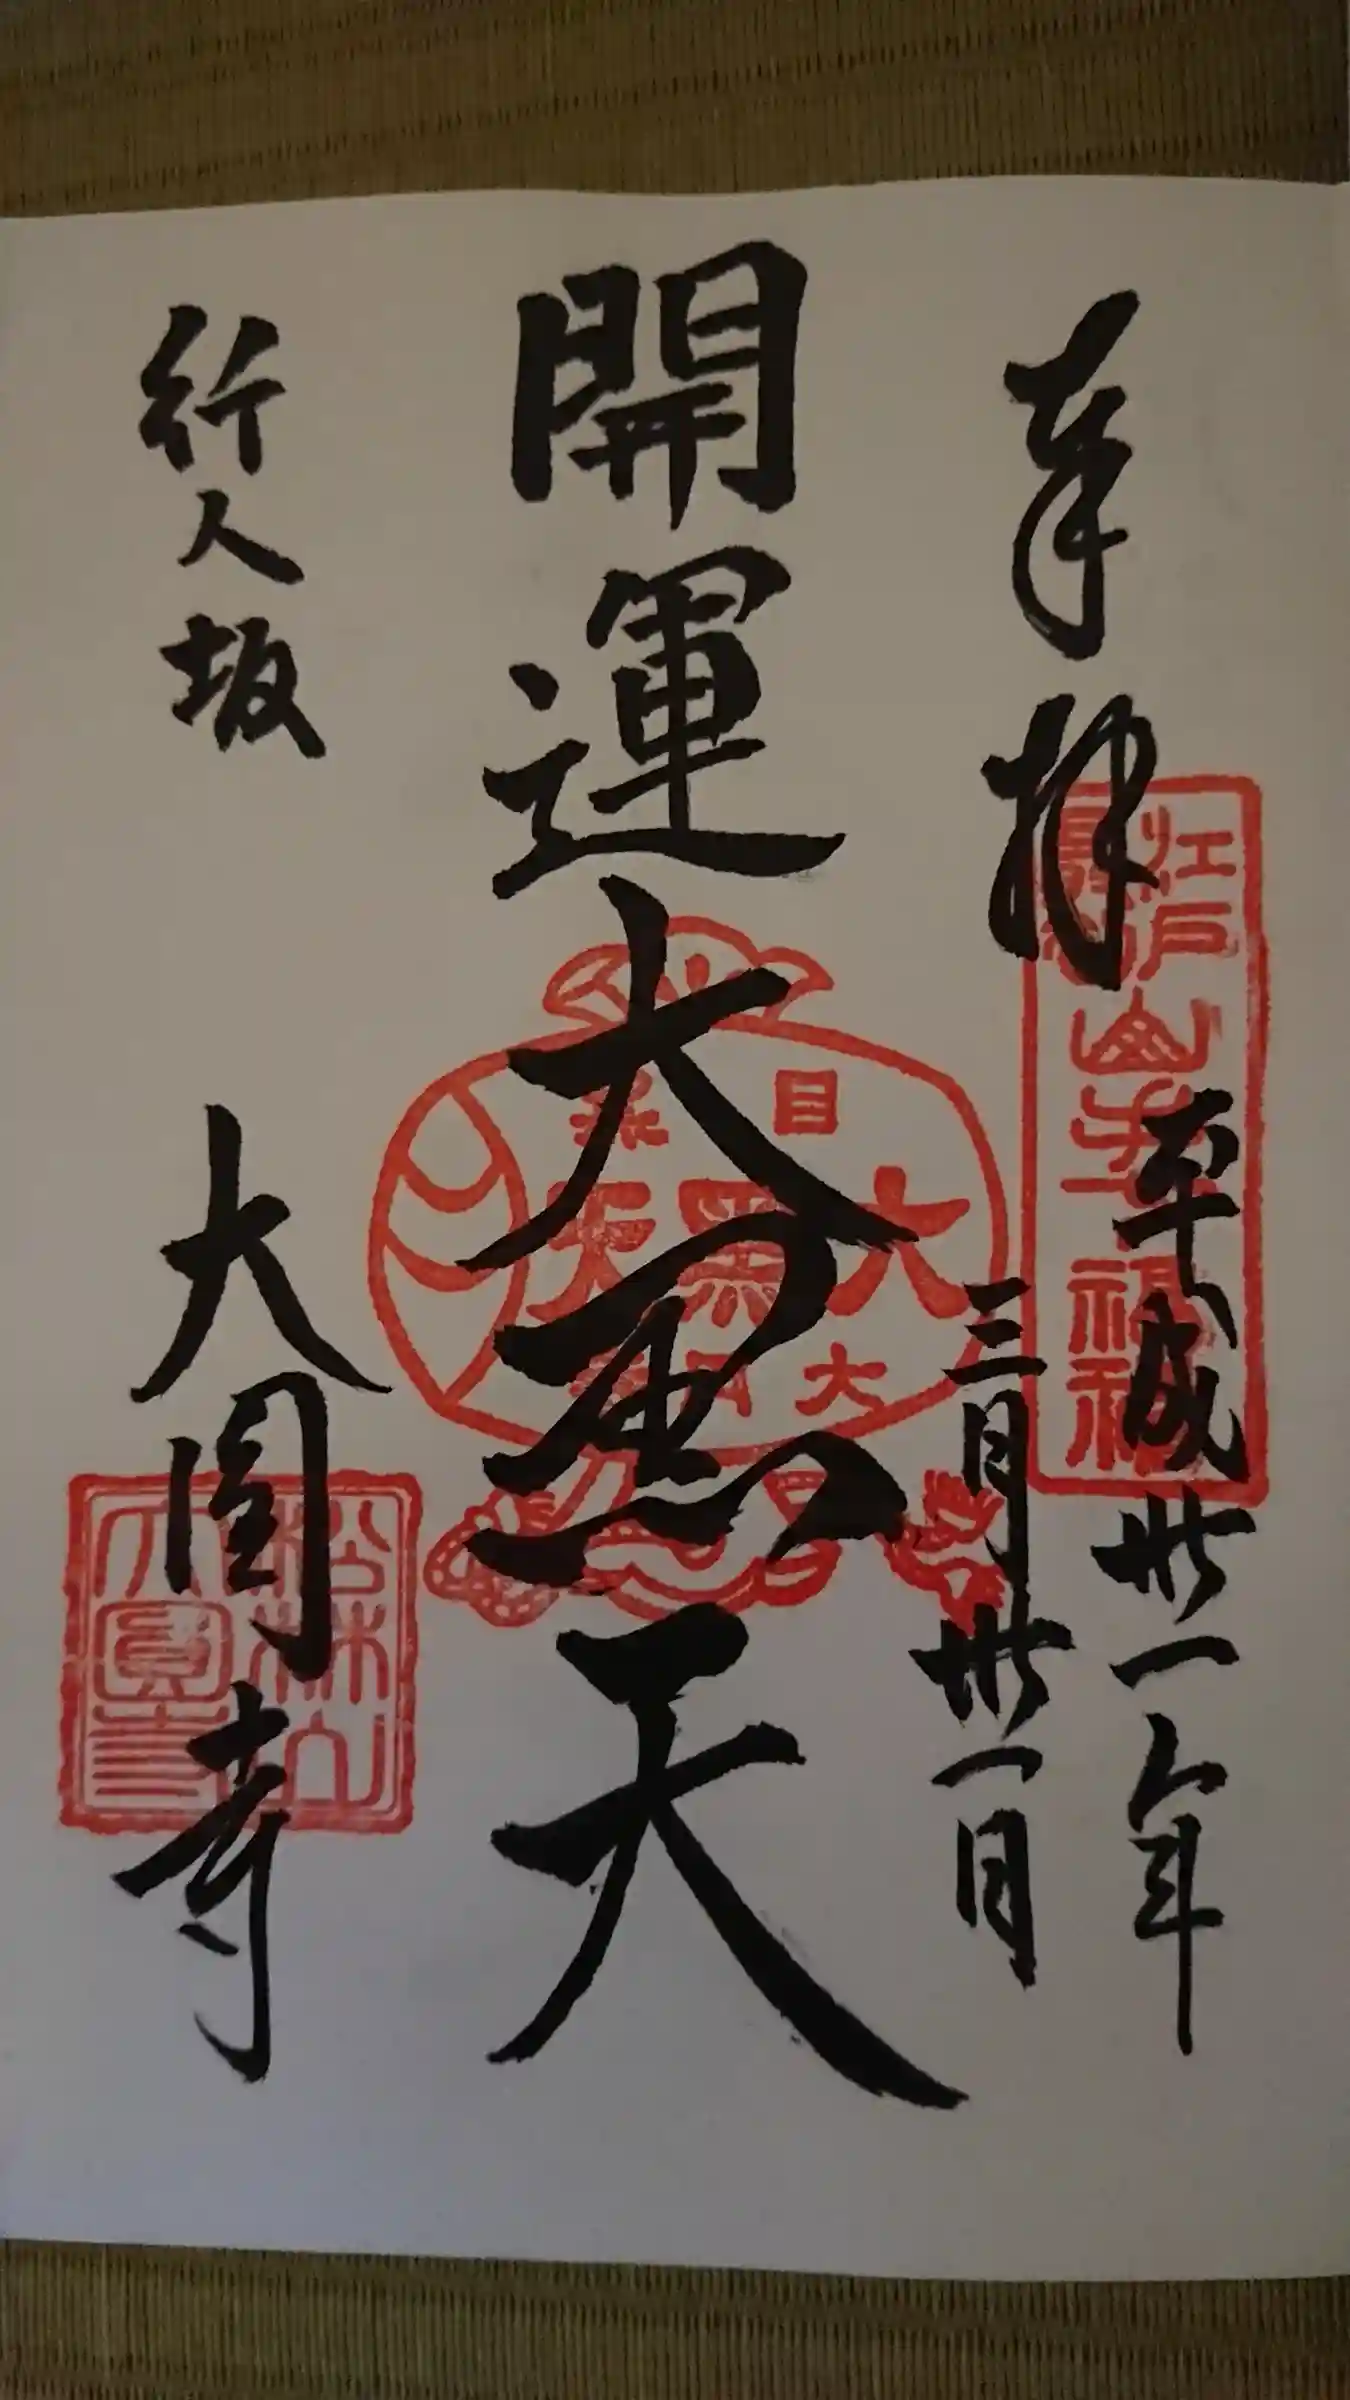 奉拝
平成卅一年
三月卅一日
開運大黒天
行人坂
大圓寺
江戸
山手七福神
目黒
大黒天
大円寺
松林山
大圓寺